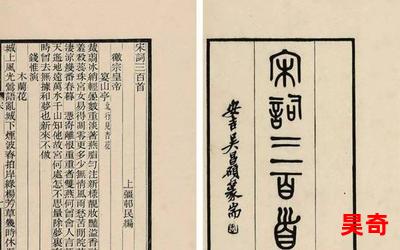 宋詞三百首
上彊邨民編
徽宗皇帝
宴山亭 北行見杏花
裁翦冰綃輕疊數重淡著燕脂勻注新樣靚妝豔溢香
羞殺蕊珠宮女易得凋零更多少無情風雨愁苦閒院
淒涼幾番春暮 憑寄離恨重重者雙燕何曾會人言
天遙地遠萬水千山知他故宮何處怎不思量除夢裏
時曾去無據和夢也新來不做
錢惟演
木蘭花
城上風光鶯語亂城下煙波春拍岸綠楊芳草幾時休
宋詞三百首
安吉吳昌碩篆耑
昊奇